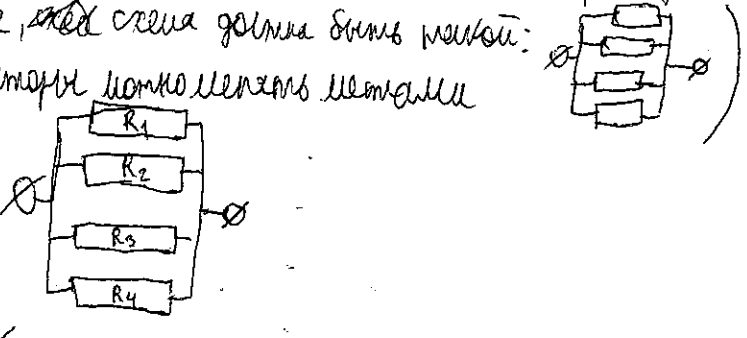 схема должна быть такой:
торы можно менять местами
R1
R2
R3
R4